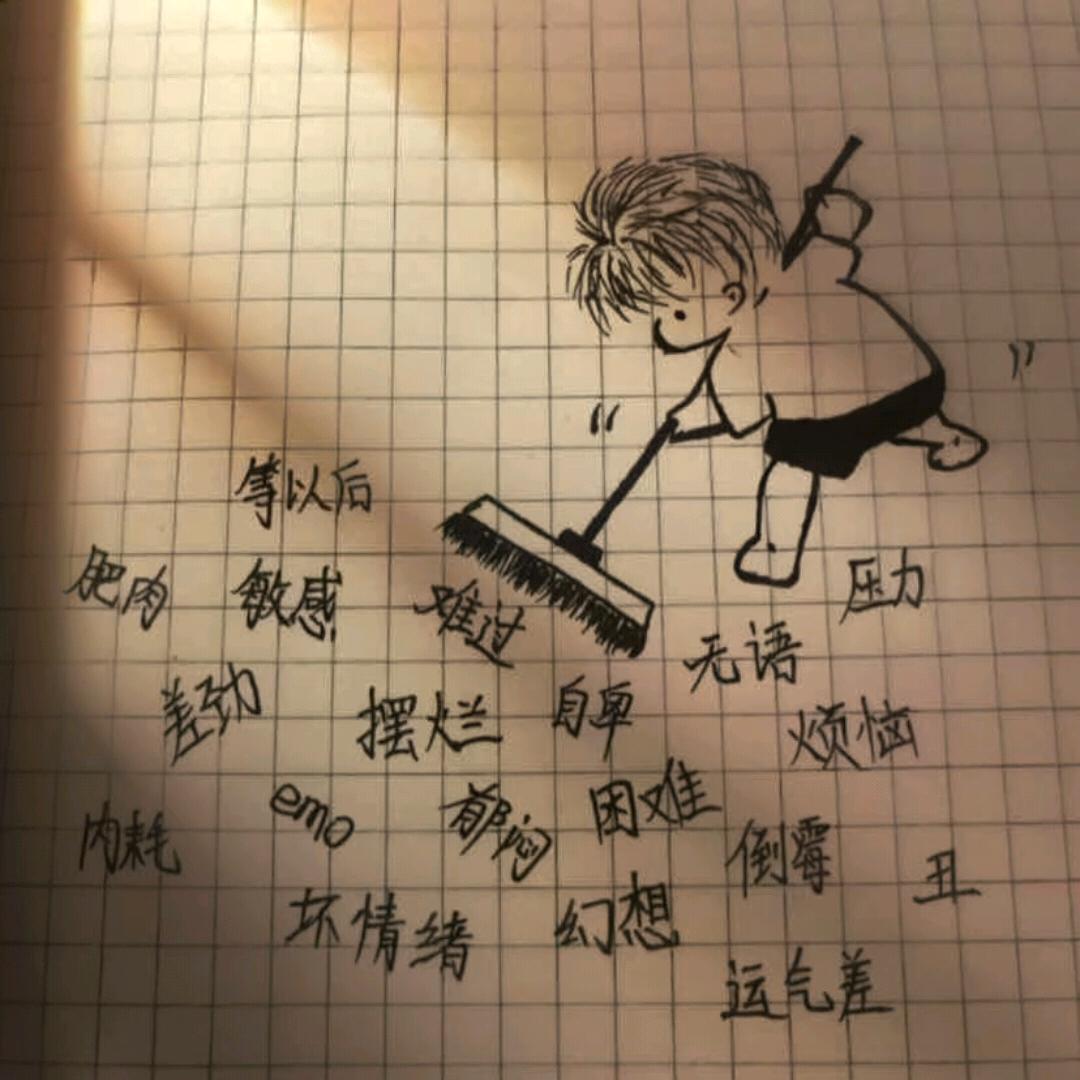 等以后
肥肉
敏感
难过
压力
无语
差劲
摆烂
自卑
烦恼
emo
郁闷
困难
内耗
倒霉
丑
坏情绪
幻想
运气差